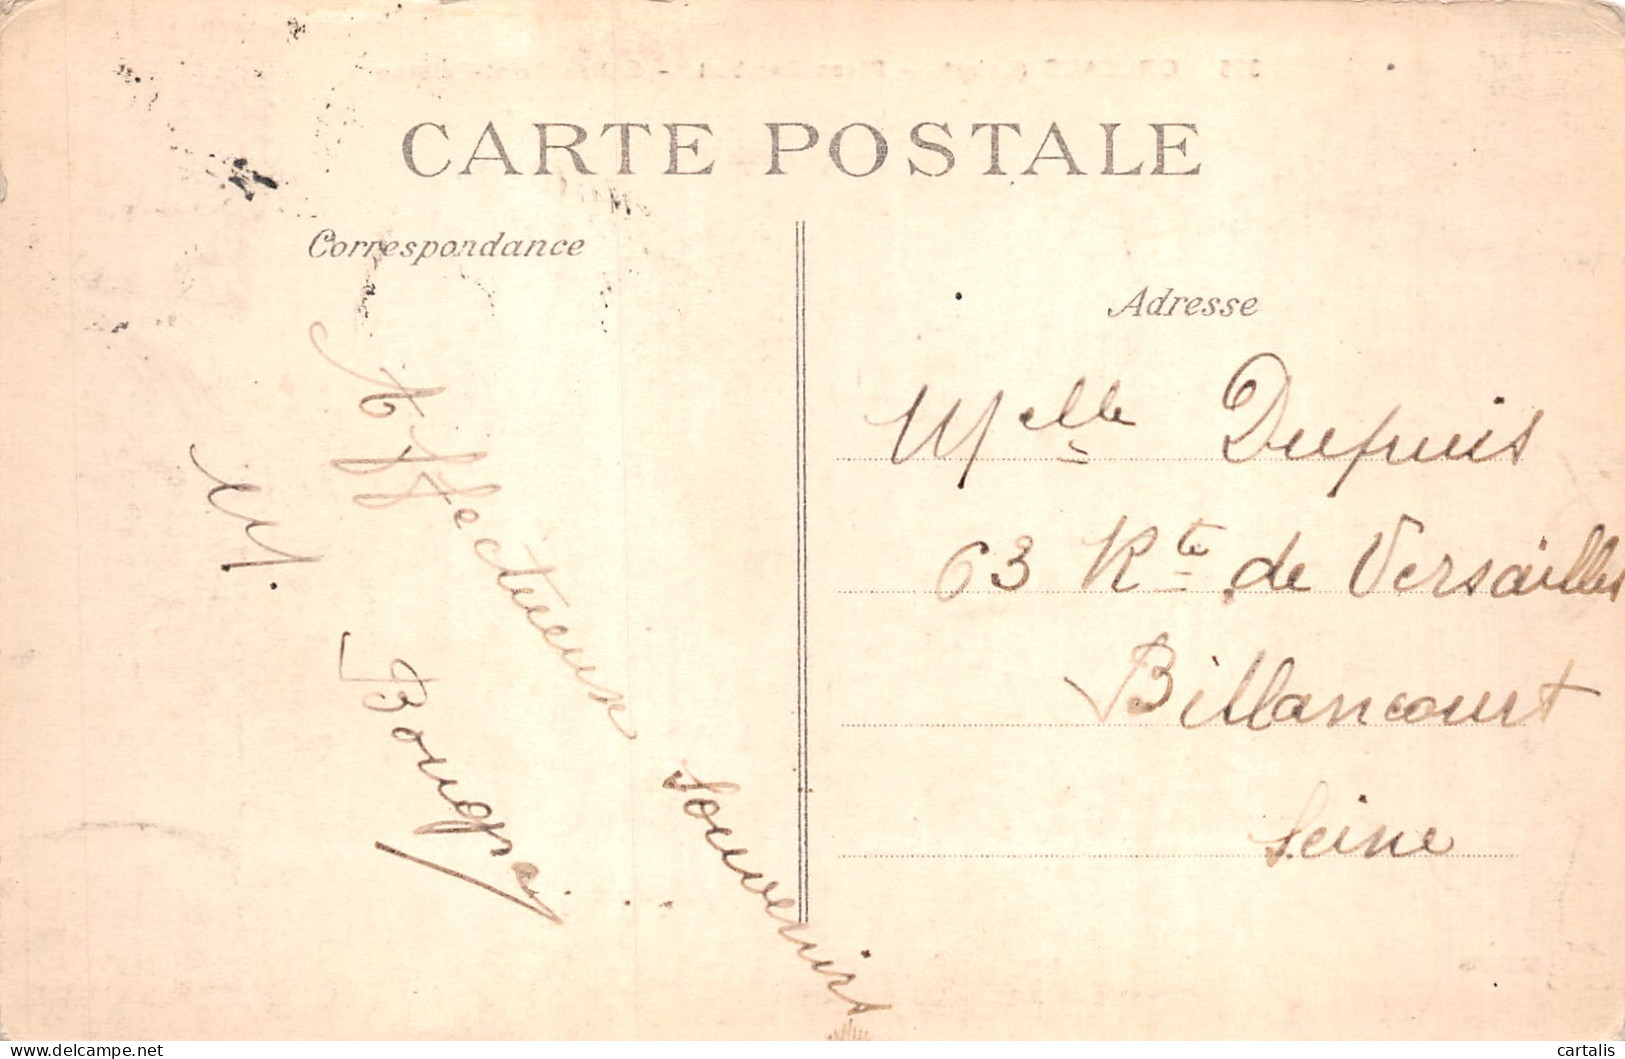 CARTE POSTALE
Correspondance
Affectueux souvenirs
M.
Adresse
Melle Dupuis
63 Rte de Versailles
Billancourt
Seine
www.delcampe.net
cartalis